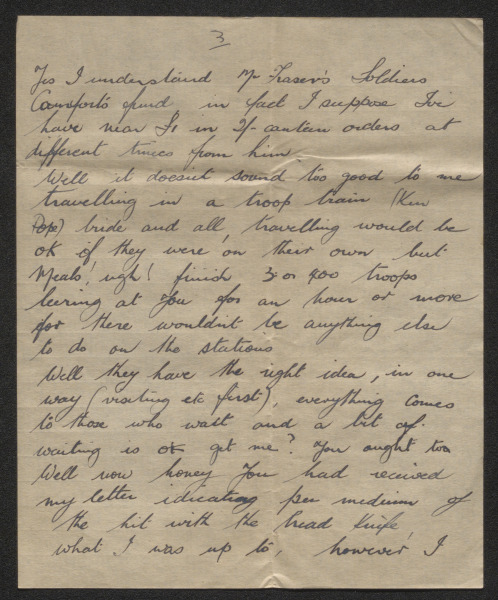 3
Yes I understand Mr Fraser's Soldiers
Comforts fund in fact I suppose I've
have near £1 in 2/- canteen orders at
different times from him
Well it doesn't sound too good to me
travelling in a troop train (Ken
Pope) bride and all, travelling would be
ok if they were on their own but
Meals! ugh! finish 3 or 400 troops
leering at you for an hour or more
for there wouldn't be anything else
to do on the stations
Well they have the right idea, in one
way (visiting etc first), everything comes
to those who wait and a bit of
waiting is ok get me? You ought too
Well now honey you had received
my letter idicating per medium of
the hit with the bread knife
what I was up to, however I